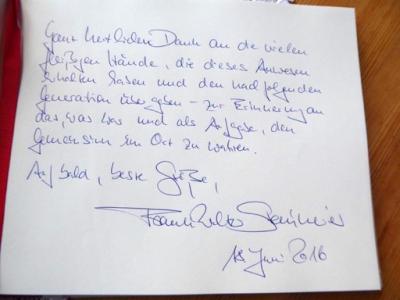 Ganz herzlichen Dank an die vielen
fleißigen Hände, die dieses Anwesen
erhalten haben und den nachfolgenden
Generation übergeben – zur Erinnerung an
das, was war und als Aufgabe, den
Gemeinsinn im Ort zu wahren.
Auf bald, beste Grüße,
Frank-Walter Steinmeier
18. Juni 2016